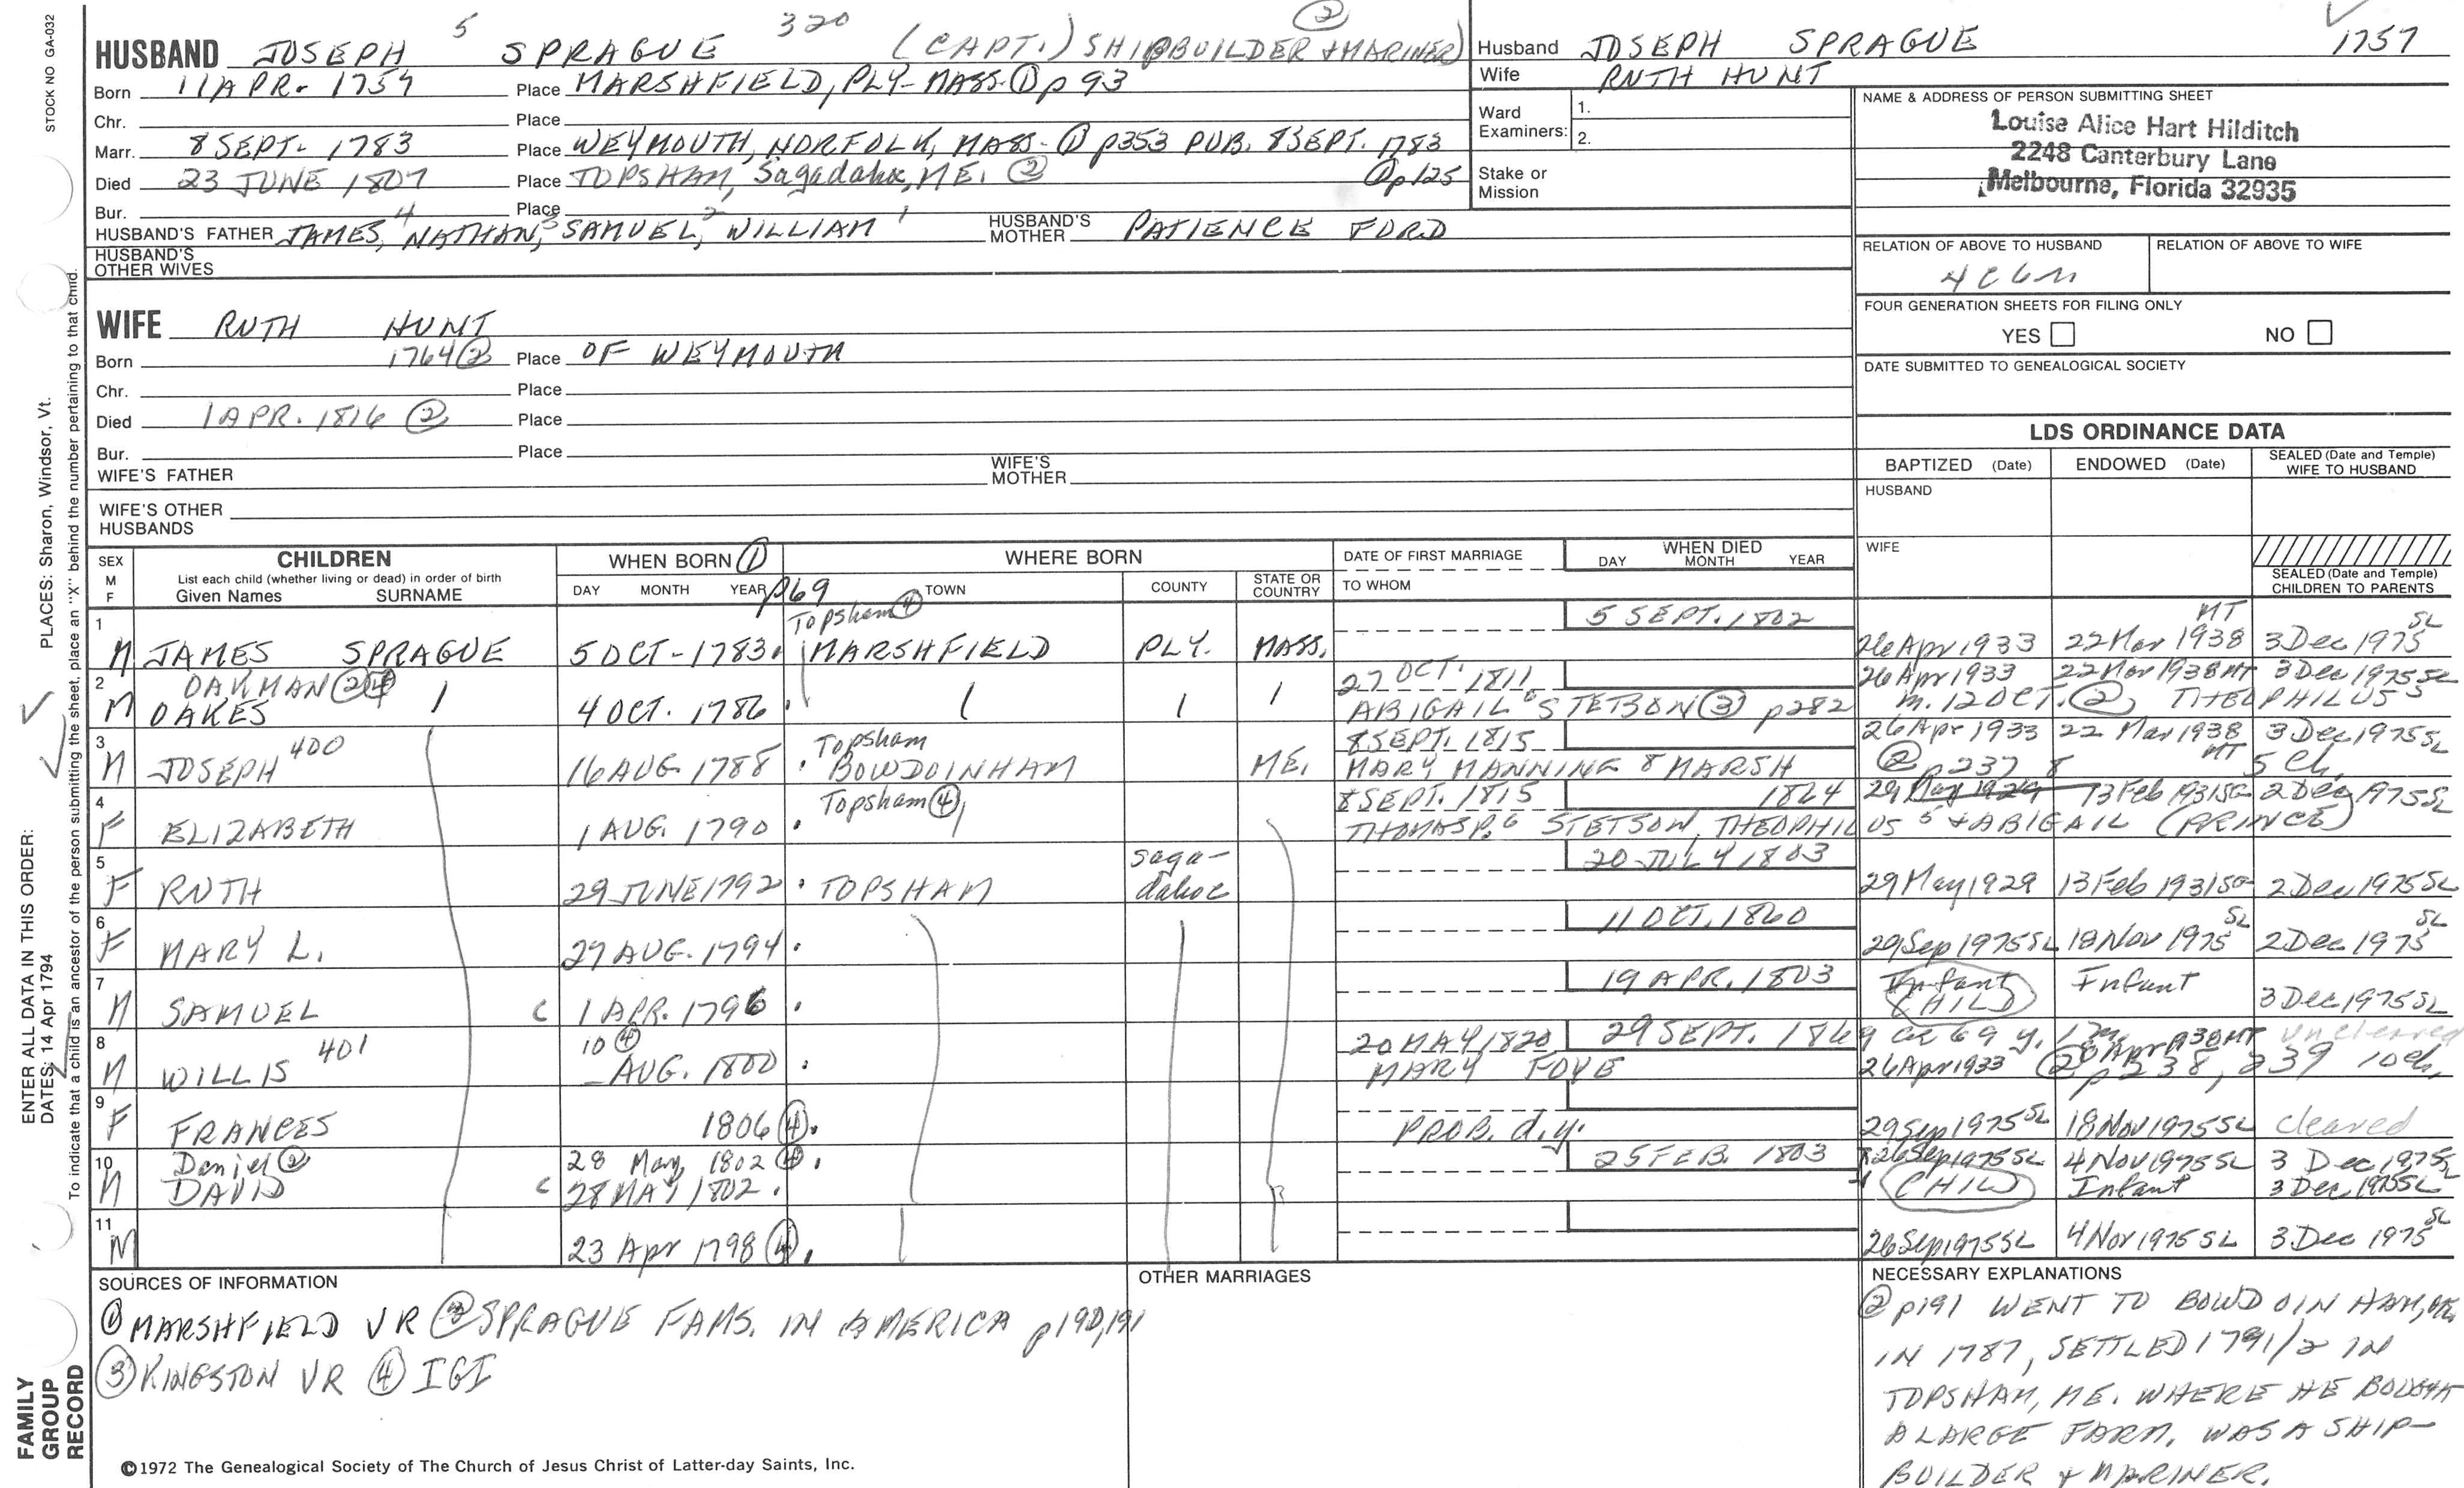 STOCK NO GA-032
HUSBAND JOSEPH 5 SPRAGUE 320 (CAPT.) SHIPBUILDER & MARINER) ②
Born 11 APR. 1757 Place MARSHFIELD, PLY-MASS. ① p 93
Chr. Place
Marr. 8 SEPT. 1783 Place WEYMOUTH, NORFOLK, MASS. ① p353 PUB. 8 SEPT. 1783
Died 23 JUNE 1807 Place TOPSHAM, Sagadahoc, ME. ② ① p125
Bur. Place
HUSBAND'S FATHER JAMES,4 NATHAN,3 SAMUEL,2 WILLIAM1 HUSBAND'S MOTHER PATIENCE FORD
HUSBAND'S OTHER WIVES
WIFE RUTH HUNT
Born 1764 ② Place OF WEYMOUTH
Chr. Place
Died 1 APR. 1816 ② Place
Bur. Place
WIFE'S FATHER WIFE'S MOTHER
WIFE'S OTHER HUSBANDS
Husband JOSEPH SPRAGUE 1757
Wife RUTH HUNT
Ward Examiners: 1.
2.
Stake or Mission
NAME & ADDRESS OF PERSON SUBMITTING SHEET
Louise Alice Hart Hilditch
2248 Canterbury Lane
Melbourne, Florida 32935
RELATION OF ABOVE TO HUSBAND RELATION OF ABOVE TO WIFE
FOUR GENERATION SHEETS FOR FILING ONLY
YES NO
DATE SUBMITTED TO GENEALOGICAL SOCIETY
LDS ORDINANCE DATA
BAPTIZED (Date) ENDOWED (Date) SEALED (Date and Temple) WIFE TO HUSBAND
HUSBAND
WIFE
SEALED (Date and Temple) CHILDREN TO PARENTS
SEX M F CHILDREN WHEN BORN ① WHERE BORN DATE OF FIRST MARRIAGE WHEN DIED
List each child (whether living or dead) in order of birth
Given Names SURNAME DAY MONTH YEAR p69 TOWN COUNTY STATE OR COUNTRY TO WHOM DAY MONTH YEAR
1 Topsham ④ 5 SEPT. 1802 MT SL
M JAMES SPRAGUE 5 OCT-1783 MARSHFIELD PLY. MASS. 26 Apr 1933 22 Mar 1938 3 Dec 1975
2 OAKMAN ② ④ 27 OCT. 1811 26 Apr 1933 22 Mar 1938 MT 3 Dec 1975 SL
M OAKES 4 OCT. 1786 ABIGAIL 6 STETSON ③ p282 m. 12 OCT. ② THEOPHILUS 5
3 400 Topsham 8 SEPT. 1815 26 Apr 1933 22 Mar 1938 MT 3 Dec 1975 SL
M JOSEPH 16 AUG. 1788 BOWDOINHAM ME. MARY MANNING 8 MARSH ② p237 5 Ch.
4 Topsham ④ 8 SEPT. 1815 1864 29 May 1929 13 Feb 1931 2 Dec 1975 SL
F ELIZABETH 1 AUG. 1790 THOMAS P.6 STETSON, THEOPHILUS 5 & ABIGAIL (PRINCE)
5 Sagadahoc 20 JULY 1803
F RUTH 29 JUNE 1792 TOPSHAM 29 May 1929 13 Feb 1931 2 Dec 1975 SL
6 11 OCT. 1860 SL SL
F MARY L. 27 AUG. 1794 29 Sep 1975 SL 18 Nov 1975 2 Dec 1975
7 19 APR. 1803 Infant Infant
M SAMUEL C 1 APR. 1796 CHILD 3 Dec 1975 SL
8 401 10 ④ 20 MAY 1820 29 SEPT. 1869 ae 69 y. uncleared
M WILLIS AUG. 1800 MARY FOYE 26 Apr 1933 ② p238, 239 10 ch.
9
F FRANCES 1806 ④ PROB. d.y. 29 Sep 1975 SL 18 Nov 1975 SL cleared
10 Daniel ② 28 May 1802 ④ 25 FEB. 1803 26 Sep 1975 SL 4 Nov 1975 SL 3 Dec 1975 SL
M DAVID C 28 MAY 1802 CHILD Infant 3 Dec 1975 SL
11 SL
M 23 Apr 1798 ④ 26 Sep 1975 SL 4 Nov 1975 SL 3 Dec 1975
SOURCES OF INFORMATION
① MARSHFIELD VR ② SPRAGUE FAMS. IN AMERICA p190,191
③ KINGSTON VR ④ IGI
OTHER MARRIAGES
NECESSARY EXPLANATIONS
② p191 WENT TO BOWDOINHAM, ME.
IN 1787, SETTLED 1791/2 IN
TOPSHAM, ME. WHERE HE BOUGHT
A LARGE FARM. WAS A SHIP-
BUILDER & MARINER.
©1972 The Genealogical Society of The Church of Jesus Christ of Latter-day Saints, Inc.
FAMILY GROUP RECORD
ENTER ALL DATA IN THIS ORDER:
DATES: 14 Apr 1794
PLACES: Sharon, Windsor, Vt.
To indicate that a child is an ancestor of the person submitting the sheet, place an "X" behind the number pertaining to that child.